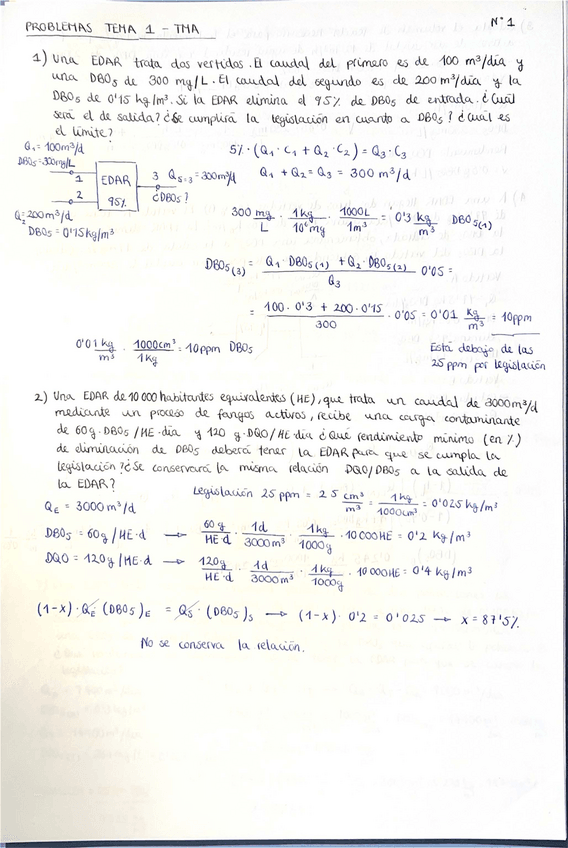 PROBLEMAS TEMA 1 - TMA
Nº 1
1) Una EDAR trata dos vertidos. El caudal del primero es de 100 m³/día y
una DBO5 de 300 mg/L. El caudal del segundo es de 200 m³/día y la
DBO5 de 0'15 kg/m³. Si la EDAR elimina el 95% de DBO5 de entrada. ¿Cuál
será el de salida? ¿Se cumplirá la legislación en cuanto a DBO5? ¿Cuál es
el límite?
Q1 = 100 m³/d
DBO5 = 300mg/L
1
2
EDAR
95%
3 Qs=3 = 300m³/d
¿DBO5?
Q2 = 200 m³/d
DBO5 = 0'15 kg/m³
5% · (Q1 · C1 + Q2 · C2) = Q3 · C3
Q1 + Q2 = Q3 = 300 m³/d
300 mg/L · 1kg/10⁶ mg · 1000L/1m³ = 0'3 kg/m³ DBO5(1)
DBO5(3) = (Q1 · DBO5(1) + Q2 · DBO5(2))/Q3 0'05 =
= (100 · 0'3 + 200 · 0'15)/300 · 0'05 = 0'01 kg/m³ = 10ppm
0'01 kg/m³ · 1000cm³/1kg = 10 ppm DBO5
Está debajo de las
25 ppm por legislación
2) Una EDAR de 10 000 habitantes equivalentes (HE), que trata un caudal de 3000m³/d
mediante un proceso de fangos activos, recibe una carga contaminante
de 60 g · DBO5 / HE · día y 120 g · DQO / HE día ¿Qué rendimiento mínimo (en %)
de eliminación de DBO5 deberá tener la EDAR para que se cumpla la
legislación? ¿Se conservará la misma relación DQO/DBO5 a la salida de
la EDAR?
Legislación 25 ppm = 25 cm³/m³ = 1kg/1000cm³ = 0'025 kg/m³
QE = 3000 m³/d
DBO5 = 60g / HE·d → 60 g/HE·d · 1d/3000m³ · 1kg/1000g · 10 000HE = 0'2 kg/m³
DQO = 120g / HE·d → 120g/HE·d · 1d/3000m³ · 1kg/1000g · 10 000HE = 0'4 kg/m³
(1-x) · QE · (DBO5)E = QS · (DBO5)S → (1-x) · 0'2 = 0'025 → x = 87'5%
No se conserva la relación.